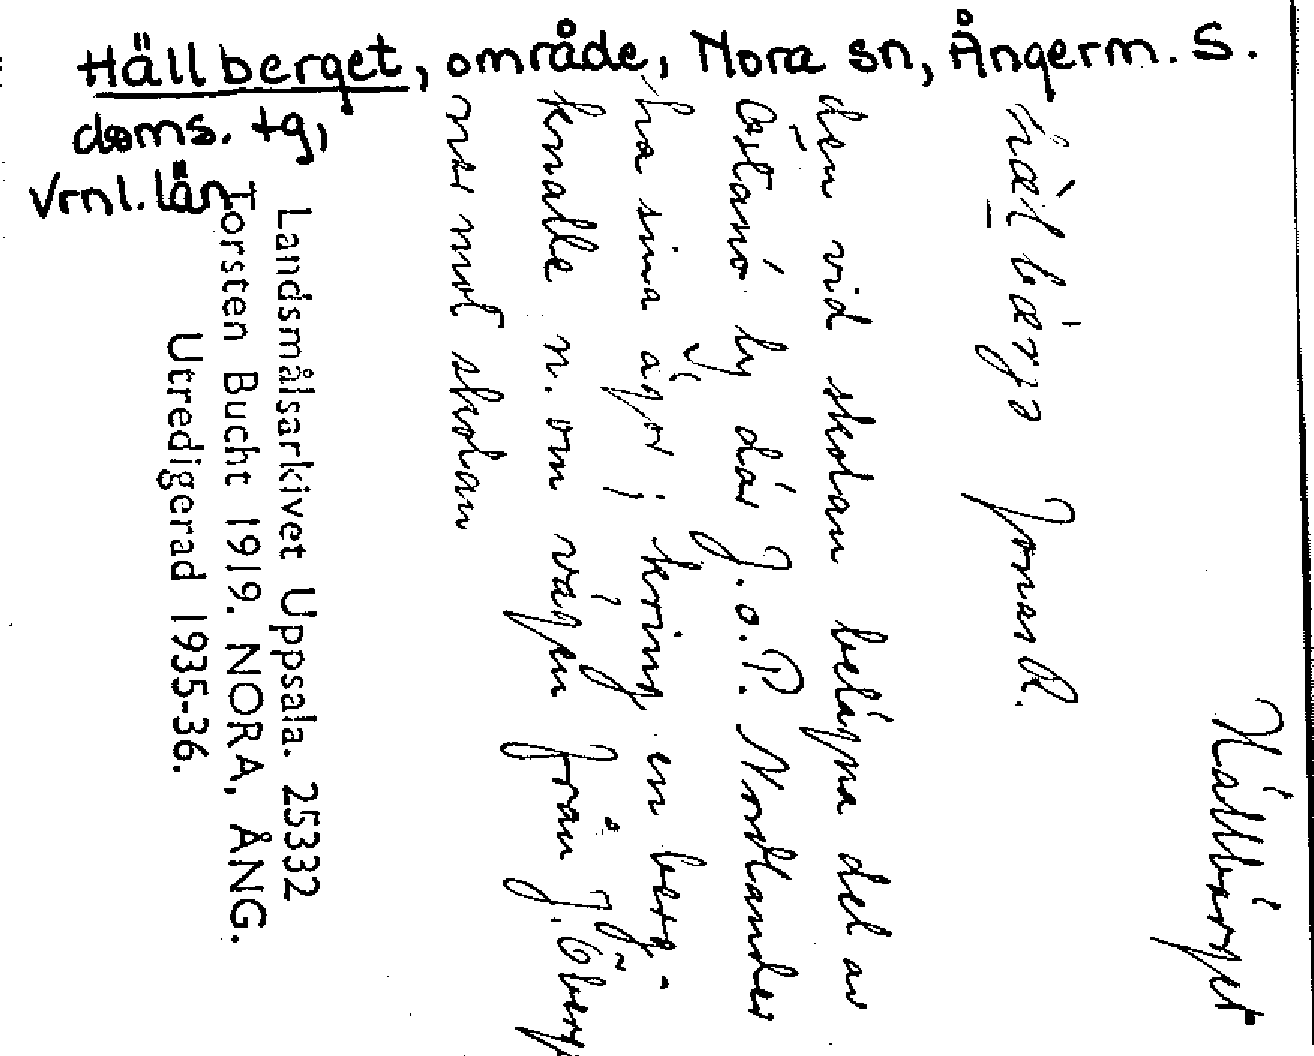 Hällberget, område, Nora sn, Ångerm. S.
doms. tg,
Vrnl. län
Hällbärget
hæl bærja Jonas R.
den vid skolan belägna del av
Östanö by där J. o. P. Nordlander
ha sina ägor; kring en berg-
knalle n. om vägen från J. Öberg
ner mot skolan
Landsmålsarkivet Uppsala. 25332
Torsten Bucht 1919. NORA, ÅNG.
Utredigerad 1935-36.